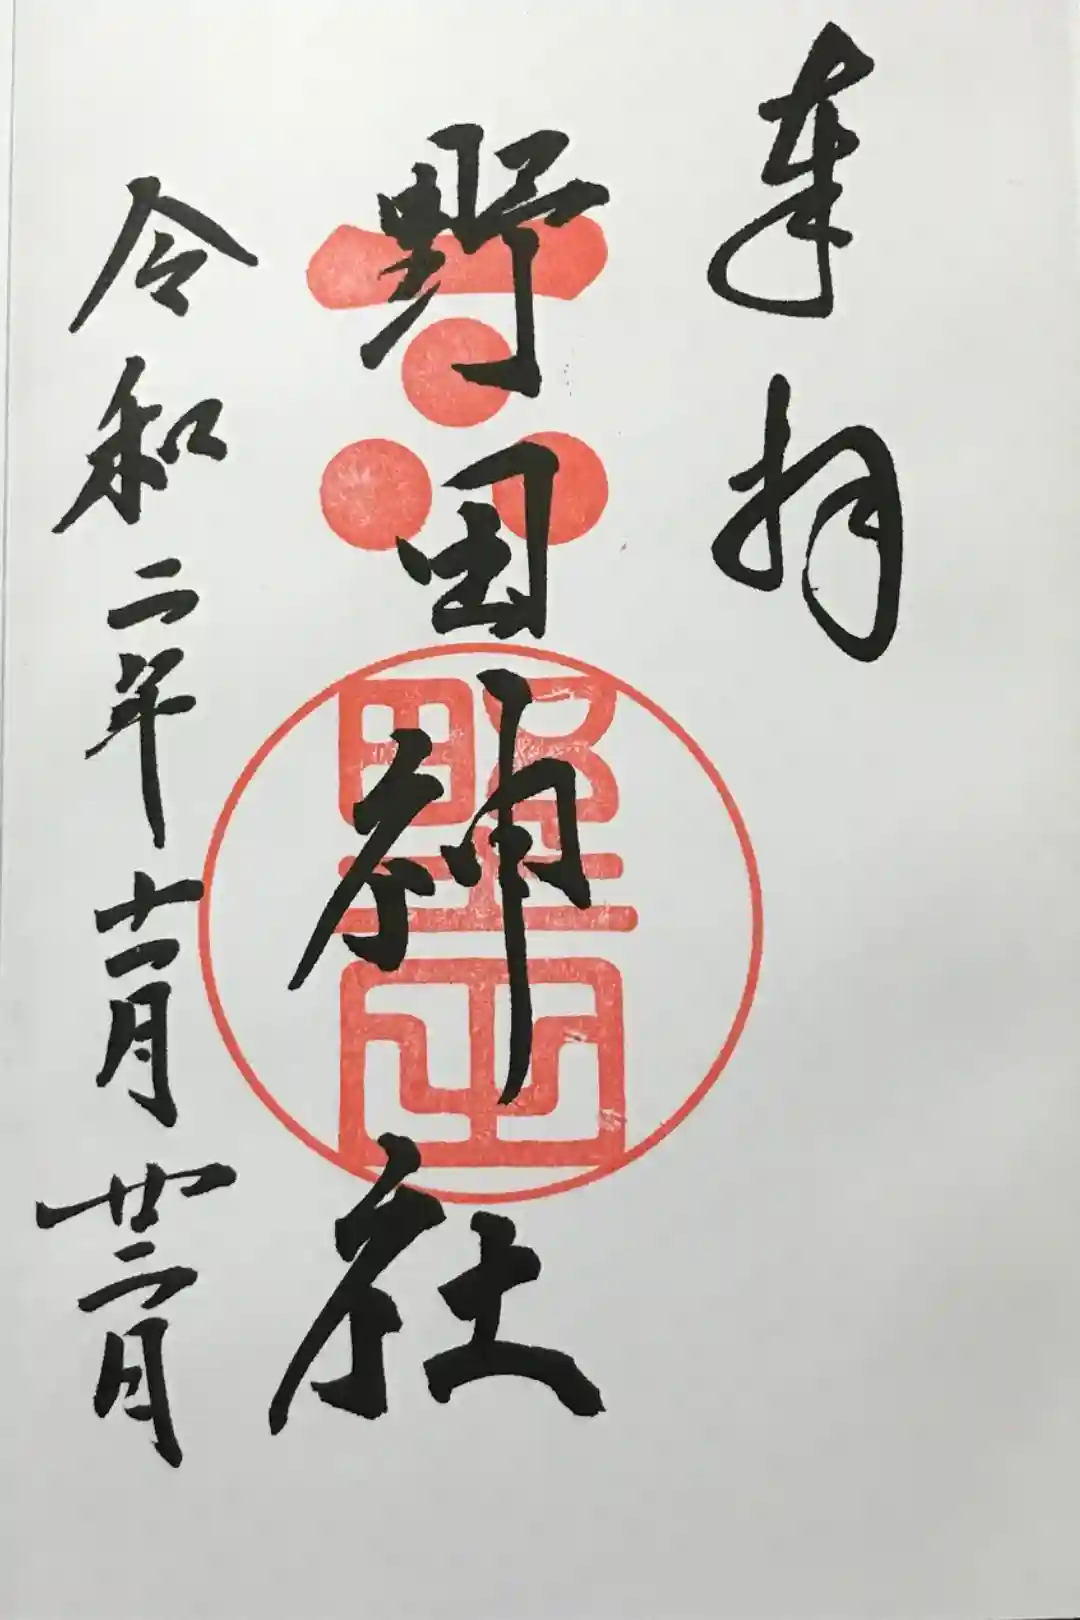 奉拝
野田神社
令和二年十一月廿二日
野田